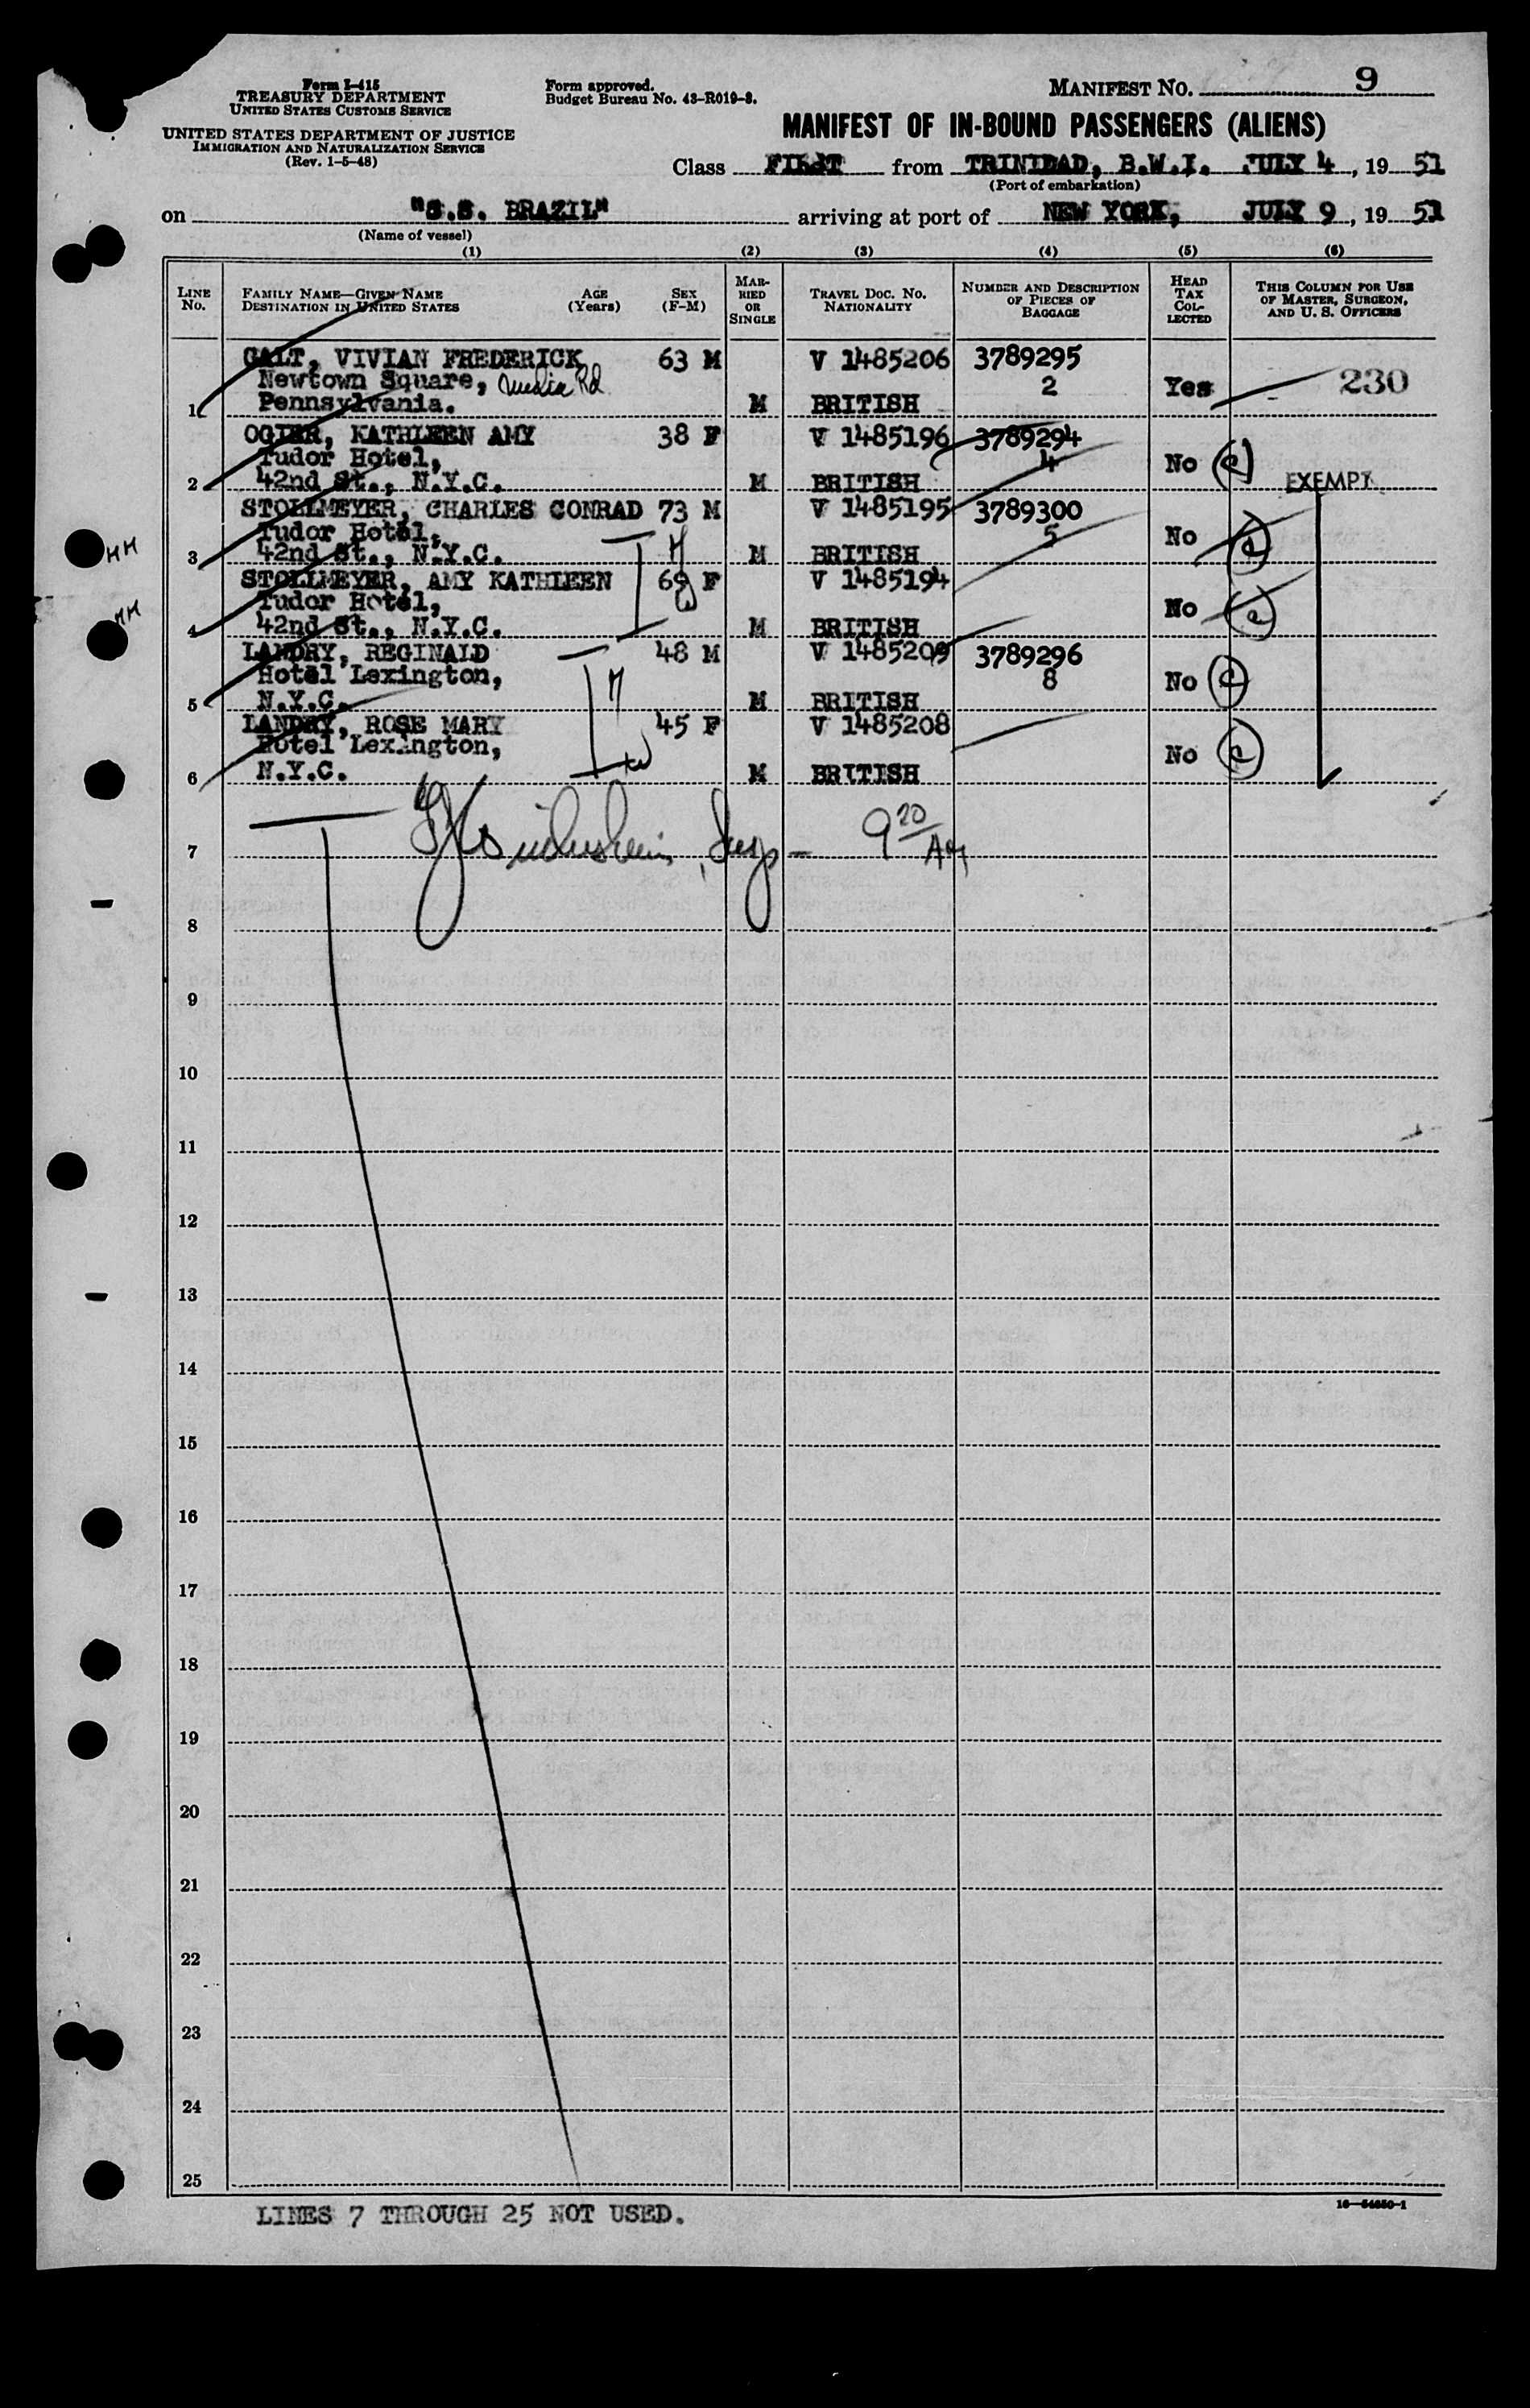 Form I-415
TREASURY DEPARTMENT
UNITED STATES CUSTOMS SERVICE
UNITED STATES DEPARTMENT OF JUSTICE
IMMIGRATION AND NATURALIZATION SERVICE
(Rev. 1-5-48)
Form approved.
Budget Bureau No. 43-R019-3.
MANIFEST NO. 9
MANIFEST OF IN-BOUND PASSENGERS (ALIENS)
Class FIRST from TRINIDAD, B.W.I. JULY 4, 19 51
(Port of embarkation)
on "S.S. BRAZIL" arriving at port of NEW YORK, JULY 9, 19 51
(Name of vessel)
(1) (2) (3) (4) (5) (6)
LINE No.
FAMILY NAME—GIVEN NAME
DESTINATION IN UNITED STATES
AGE (Years)
SEX (F-M)
MARRIED OR SINGLE
TRAVEL DOC. NO.
NATIONALITY
NUMBER AND DESCRIPTION OF PIECES OF BAGGAGE
HEAD TAX COLLECTED
THIS COLUMN FOR USE OF MASTER, SURGEON, AND U. S. OFFICERS
GALT, VIVIAN FREDERICK 63 M V 1485206 3789295
Newtown Square, Media Rd 2 Yes 230
1 Pennsylvania. M BRITISH
OGIER, KATHLEEN AMY 38 F V 1485196 3789294
Tudor Hotel, 4 No (c) EXEMPT
2 42nd St., N.Y.C. M BRITISH
STOLLMEYER, CHARLES CONRAD 73 M V 1485195 3789300
Tudor Hotel, 5 No (c)
3 42nd St., N.Y.C. H M BRITISH
STOLLMEYER, AMY KATHLEEN 69 F V 1485194
Tudor Hotel, W No (c)
4 42nd St., N.Y.C. M BRITISH
LANDRY, REGINALD 48 M V 1485209 3789296
Hotel Lexington, H 8 No (c)
5 N.Y.C. M BRITISH
LANDRY, ROSE MARY 45 F V 1485208
Hotel Lexington, W No (c)
6 N.Y.C. M BRITISH
HH
HH
7 Insp - 9 20 AM
8
9
10
11
12
13
14
15
16
17
18
19
20
21
22
23
24
25
LINES 7 THROUGH 25 NOT USED.
16—54650-1